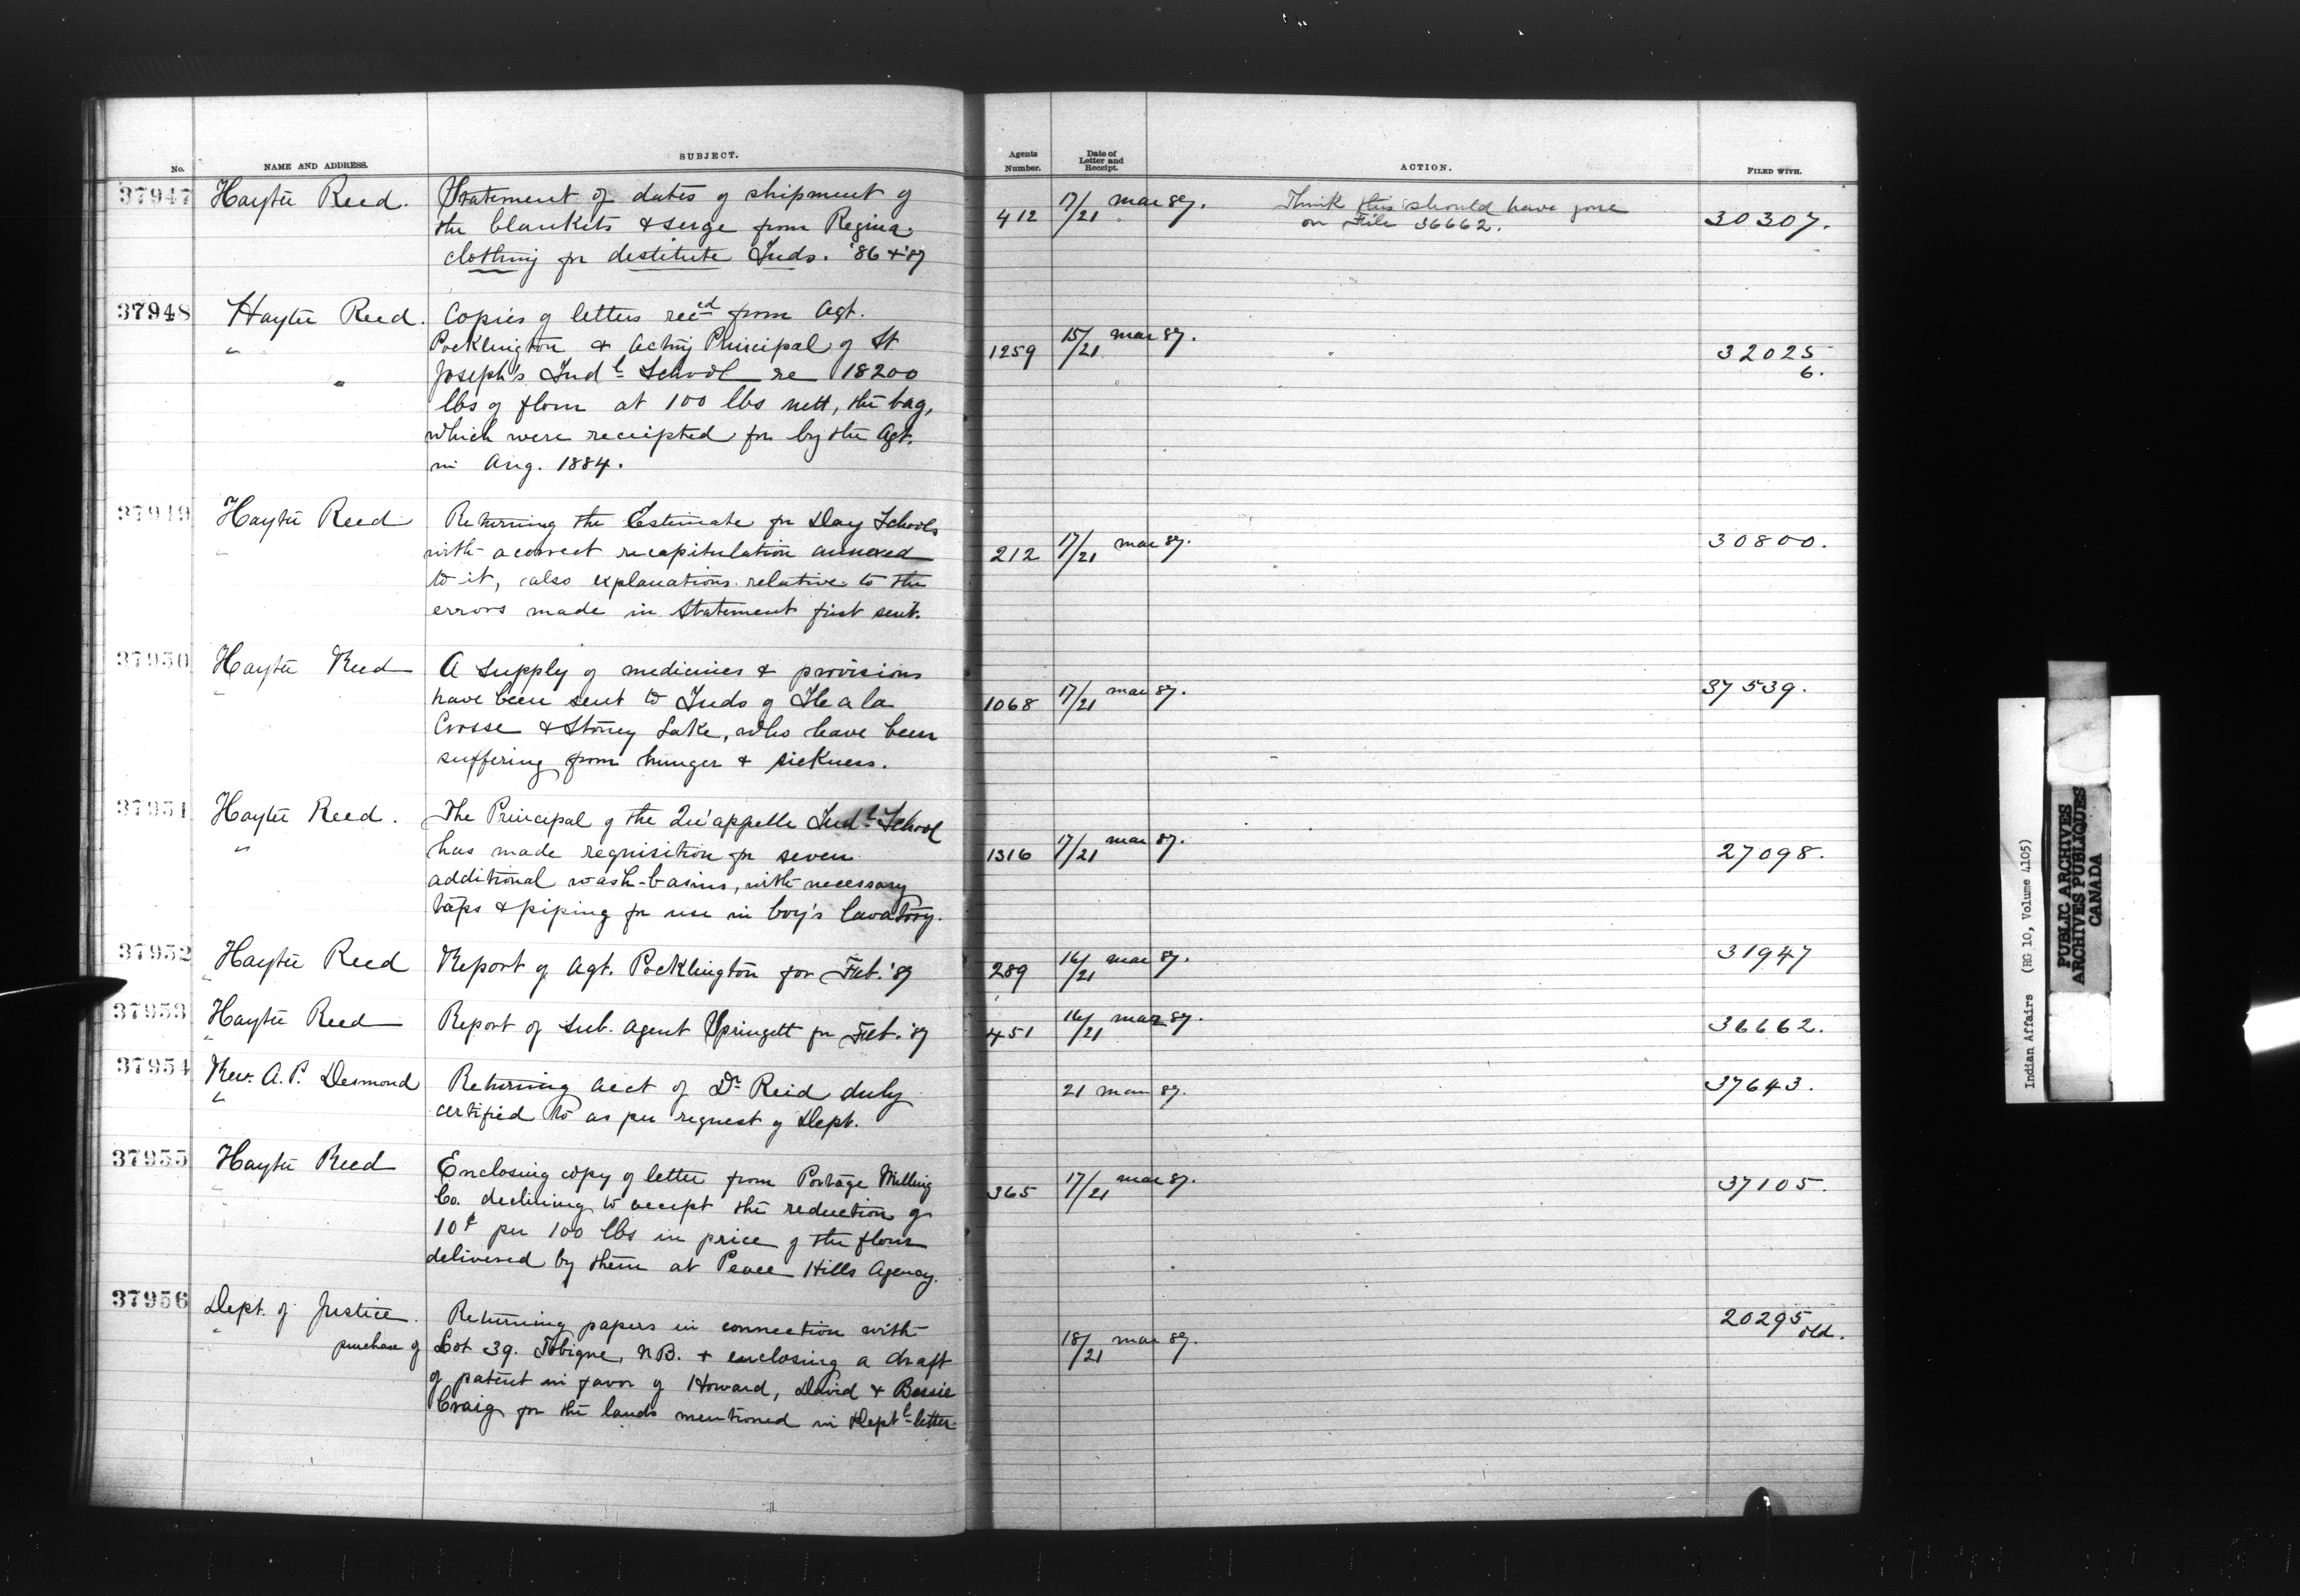 No. NAME AND ADDRESS. SUBJECT. Agents Number. Date of Letter and Receipt. ACTION. FILED WITH.
37947 Hayter Reed. Statement of dates of shipment of
the blankets & serge from Regina
clothing for destitute Inds. '86 & '87
412 17/21 Mar 87. Think this should have gone
on File 36662.
30307.
37948 Hayter Reed. Copies of letters rec'ed from Agt.
" Pocklington & Acting Principal of St
" Joseph's Indl School re 18200
lbs of flour at 100 lbs nett, the bag,
which were receipted for by the Agt.
in Aug. 1884.
1259 15/21 Mar 87. 32025
6.
37949 Hayter Reed Returning the Estimate for Day Schools
" with a correct recapitulation annexed
to it, also explanations relative to the
errors made in Statement first sent.
212 17/21 Mar 87. 30800.
37950 Hayter Reed A supply of medicines & provisions
" have been sent to Inds of Ile a la
Crosse & Stoney Lake, who have been
suffering from hunger & sickness.
1068 17/21 Mar 87. 37539.
37951 Hayter Reed. The Principal of the Qu'appelle Indl School
" has made requisition for seven
additional wash-basins, with necessary
taps & piping for use in boy's lavatory.
1316 17/21 Mar 87. 27098.
37952 Hayter Reed Report of Agt. Pocklington for Feb. '87
" 289 16/21 Mar 87. 31947
37953 Hayter Reed Report of Sub. Agent Springett for Feb. '87
" 451 16/21 Mar 87. 36662.
37954 Rev. A. P. Desmond Returning acct of Dr Reid duly
" certified to as per request of Dept.
21 Mar 87. 37643.
37955 Hayter Reed Enclosing copy of letter from Portage Milling
" Co. declining to accept the reduction of
10¢ per 100 lbs in price of the flour
delivered by them at Peace Hills Agency.
365 17/21 Mar 87. 37105.
37956 Dept. of Justice. Returning papers in connection with
" purchase of Lot 39. Tobique, N.B. & enclosing a draft
of patent in favor of Howard, David & Bessie
Craig for the lands mentioned in Deptl letter.
18/21 Mar 87. 20295
old.
Indian Affairs (RG 10, Volume 4105)
PUBLIC ARCHIVES
ARCHIVES PUBLIQUES
CANADA